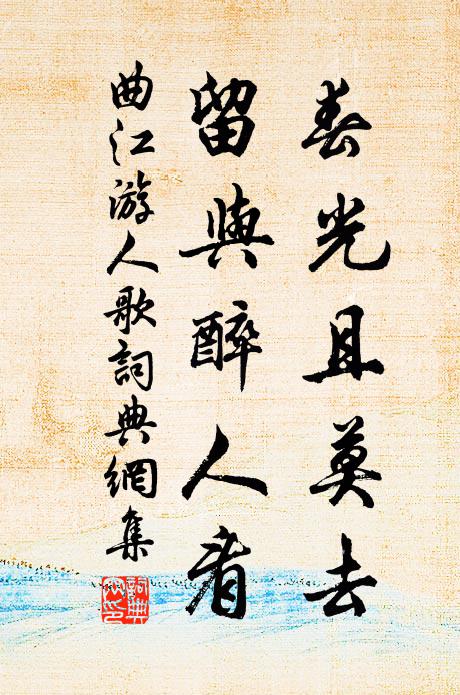 春光且莫去
留與醉人看
曲江游人歌詞典網集